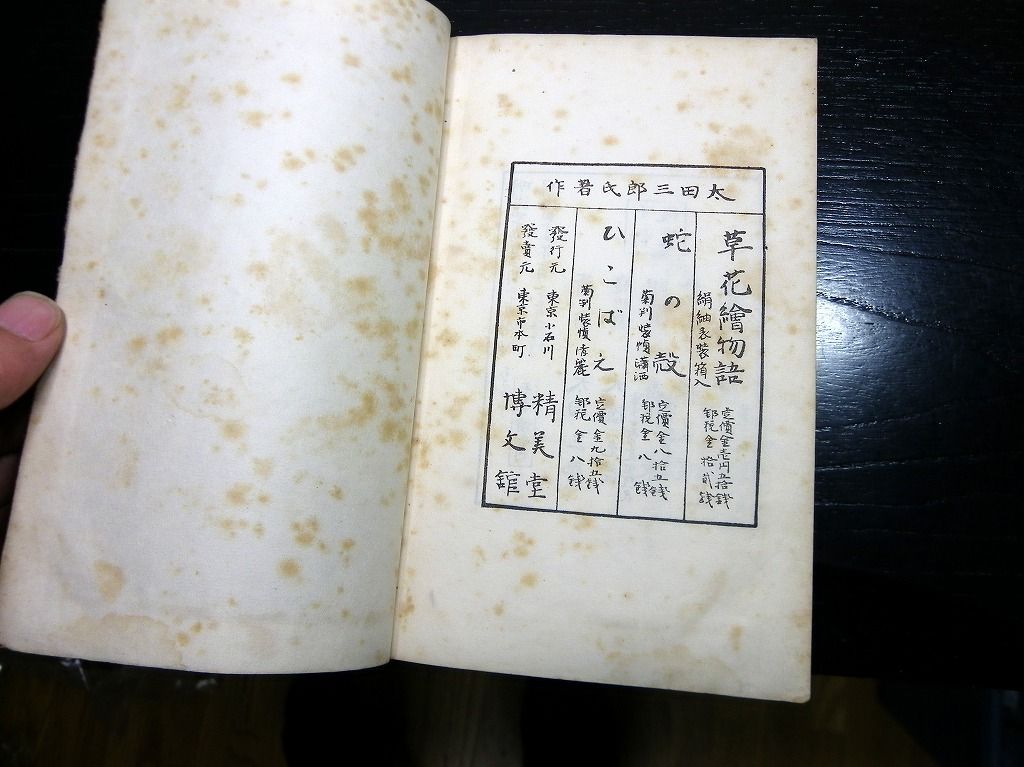 太田三郎氏著作
草花繪物語
絹紬表裝箱入
定價金壱円五拾錢
郵稅金拾貳錢
蛇の殻
菊判裝幀瀟洒
定價金八拾五錢
郵稅金八錢
ひこばえ
菊判裝幀淸麗
定價金九拾五錢
郵稅金八錢
發行元 東京小石川 精美堂
發賣元 東京市本町 博文館